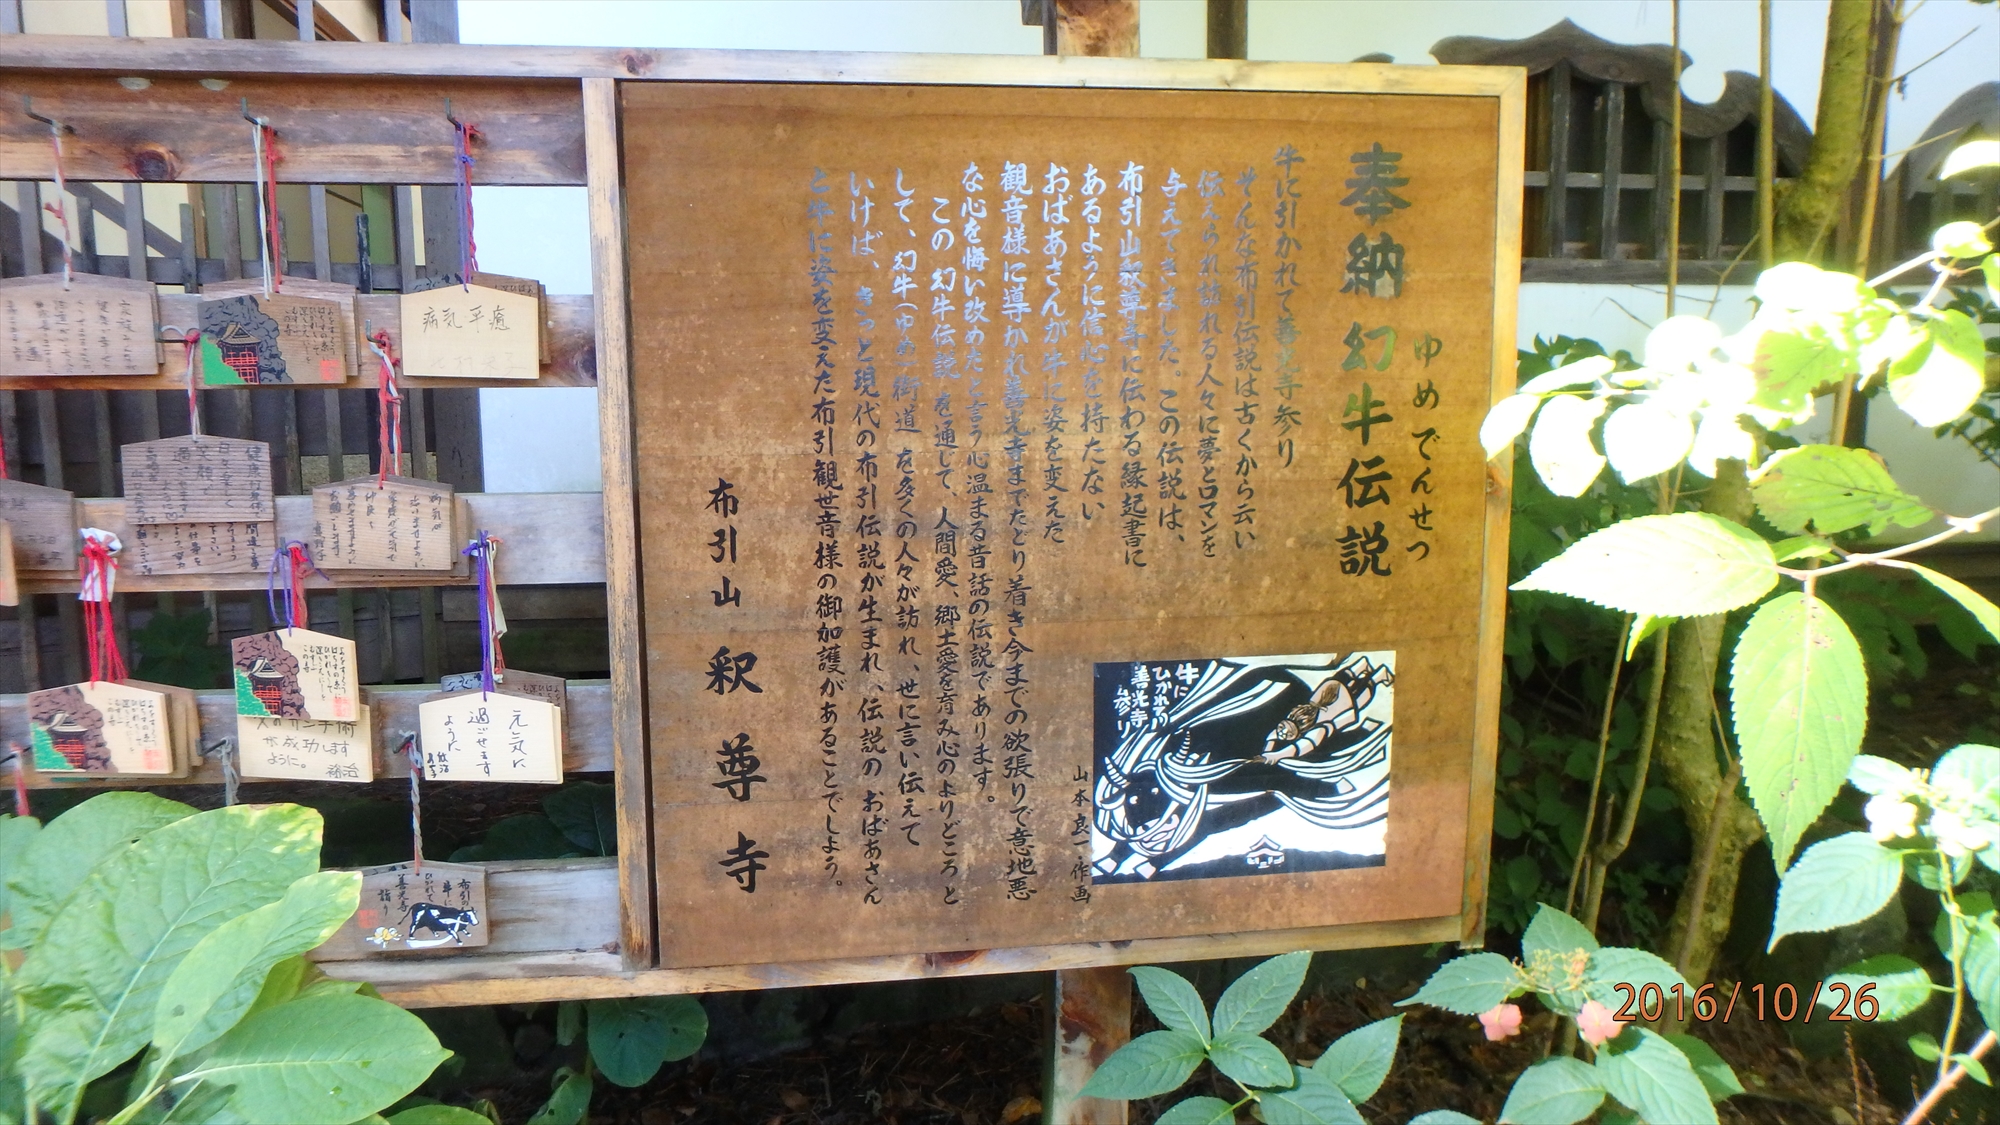 奉納 幻牛伝説
ゆめでんせつ
牛に引かれて善光寺参り
そんな布引伝説は古くから云い
伝えられ訪れる人々に夢とロマンを
与えてきました。この伝説は、
布引山釈尊寺に伝わる縁起書に
あるように信心を持たない
おばあさんが牛に姿を変えた
観音様に導かれ善光寺までたどり着き今までの欲張りで意地悪
な心を悔い改めたと言う心温まる昔話の伝説であります。
この幻牛伝説を通して、人間愛、郷土愛を育み心のよりどころと
して、幻牛(ゆめ)街道を多くの人々が訪れ、世に言い伝えて
いけば、きっと現代の布引伝説が生まれ、伝説のおばあさん
と牛に姿を変えた布引観世音様の御加護があることでしょう。
布引山 釈尊寺
牛に
ひかれて
善光寺
参り
山本良一・作画
病気平癒
元気に
過ごせます
ように
が成功します
ように。
布引の
牛に
ひかれて
善光寺
詣り
2016/10/26